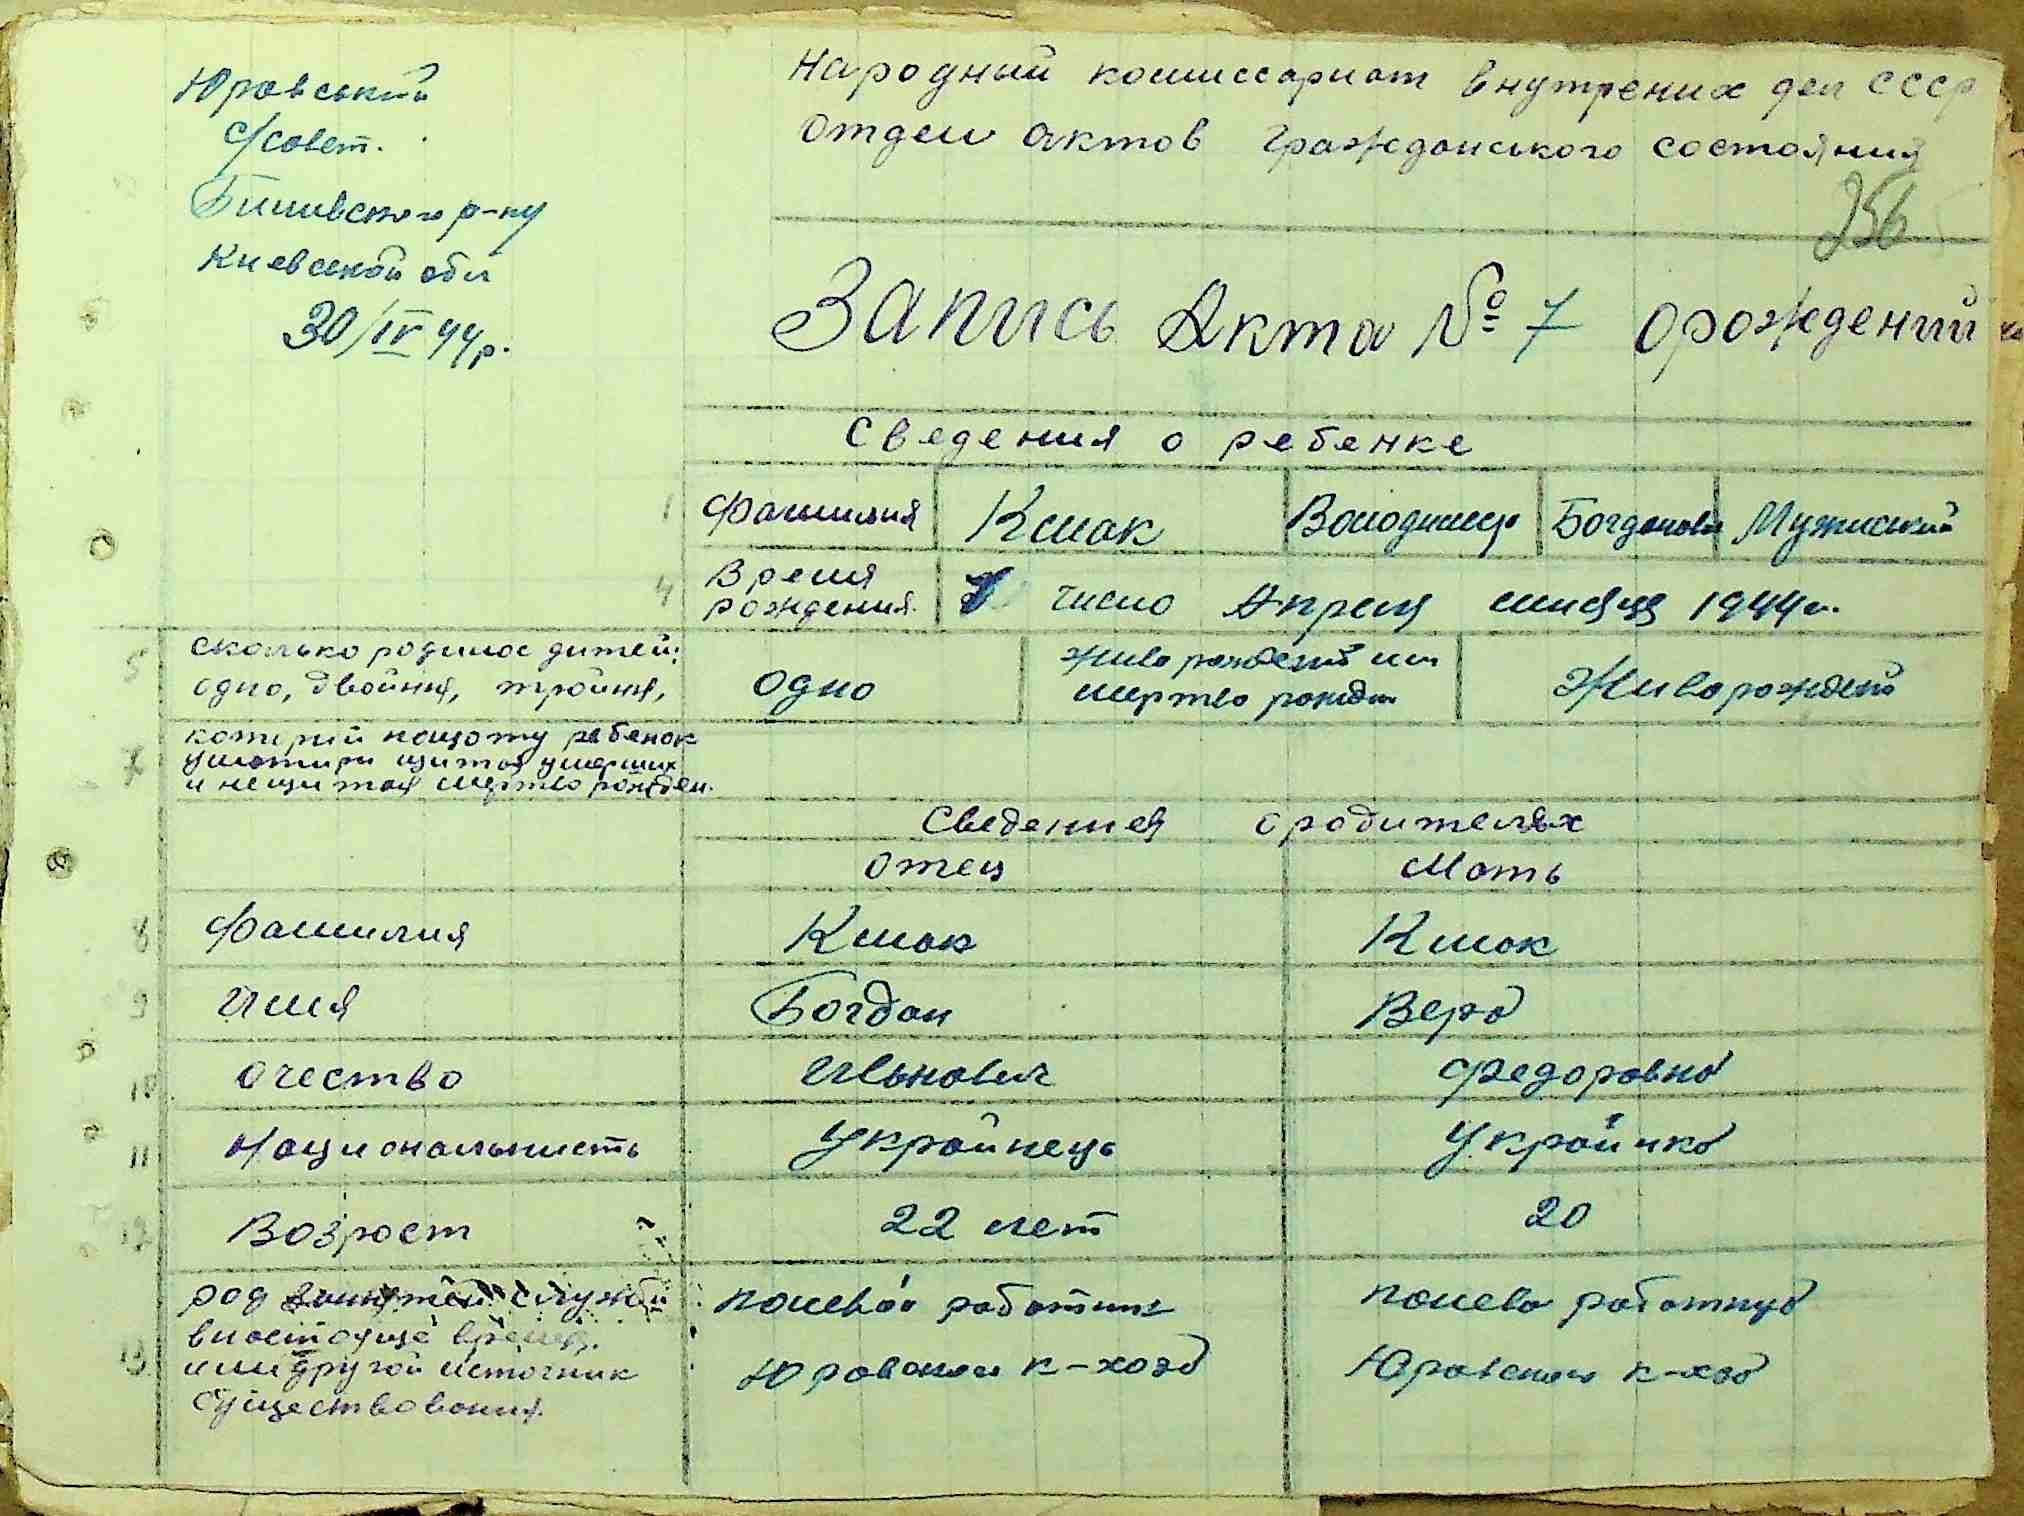 Юравський
с/совет.
Бишивского р-ну
Киевской обл
30/IV 44р.
Народный комиссариат внутрених дел СССР
Отдел актов гражданского состояния
256
Запись Акта № 7 орождений
Сведения о ребенке
1 Фамилия Кмак Володимир Богданови Мужиский
4 Время
рождения. число Апреля мисяця 1944г.
5 сколько родилос дитей:
одно, двойня, тройня, одно Живо рождений или
мертво рожден Живорождений
7 котирий нащоту ребенок
щитая умерших
и нещитая мертво рожден.
Сведения ородителях
отец Мать
8 Фамилия Кмак Кмак
9 Имя Богдан Вера
10 Очество Иванович Федоровна
11 Национальность Украйнець Украйнка
12 Возраст 22 лет 20
13 род службы полевой работник полева работнца
внастояще время,
или другой источник Юравском к-хозд Юравском к-хоз
существования.